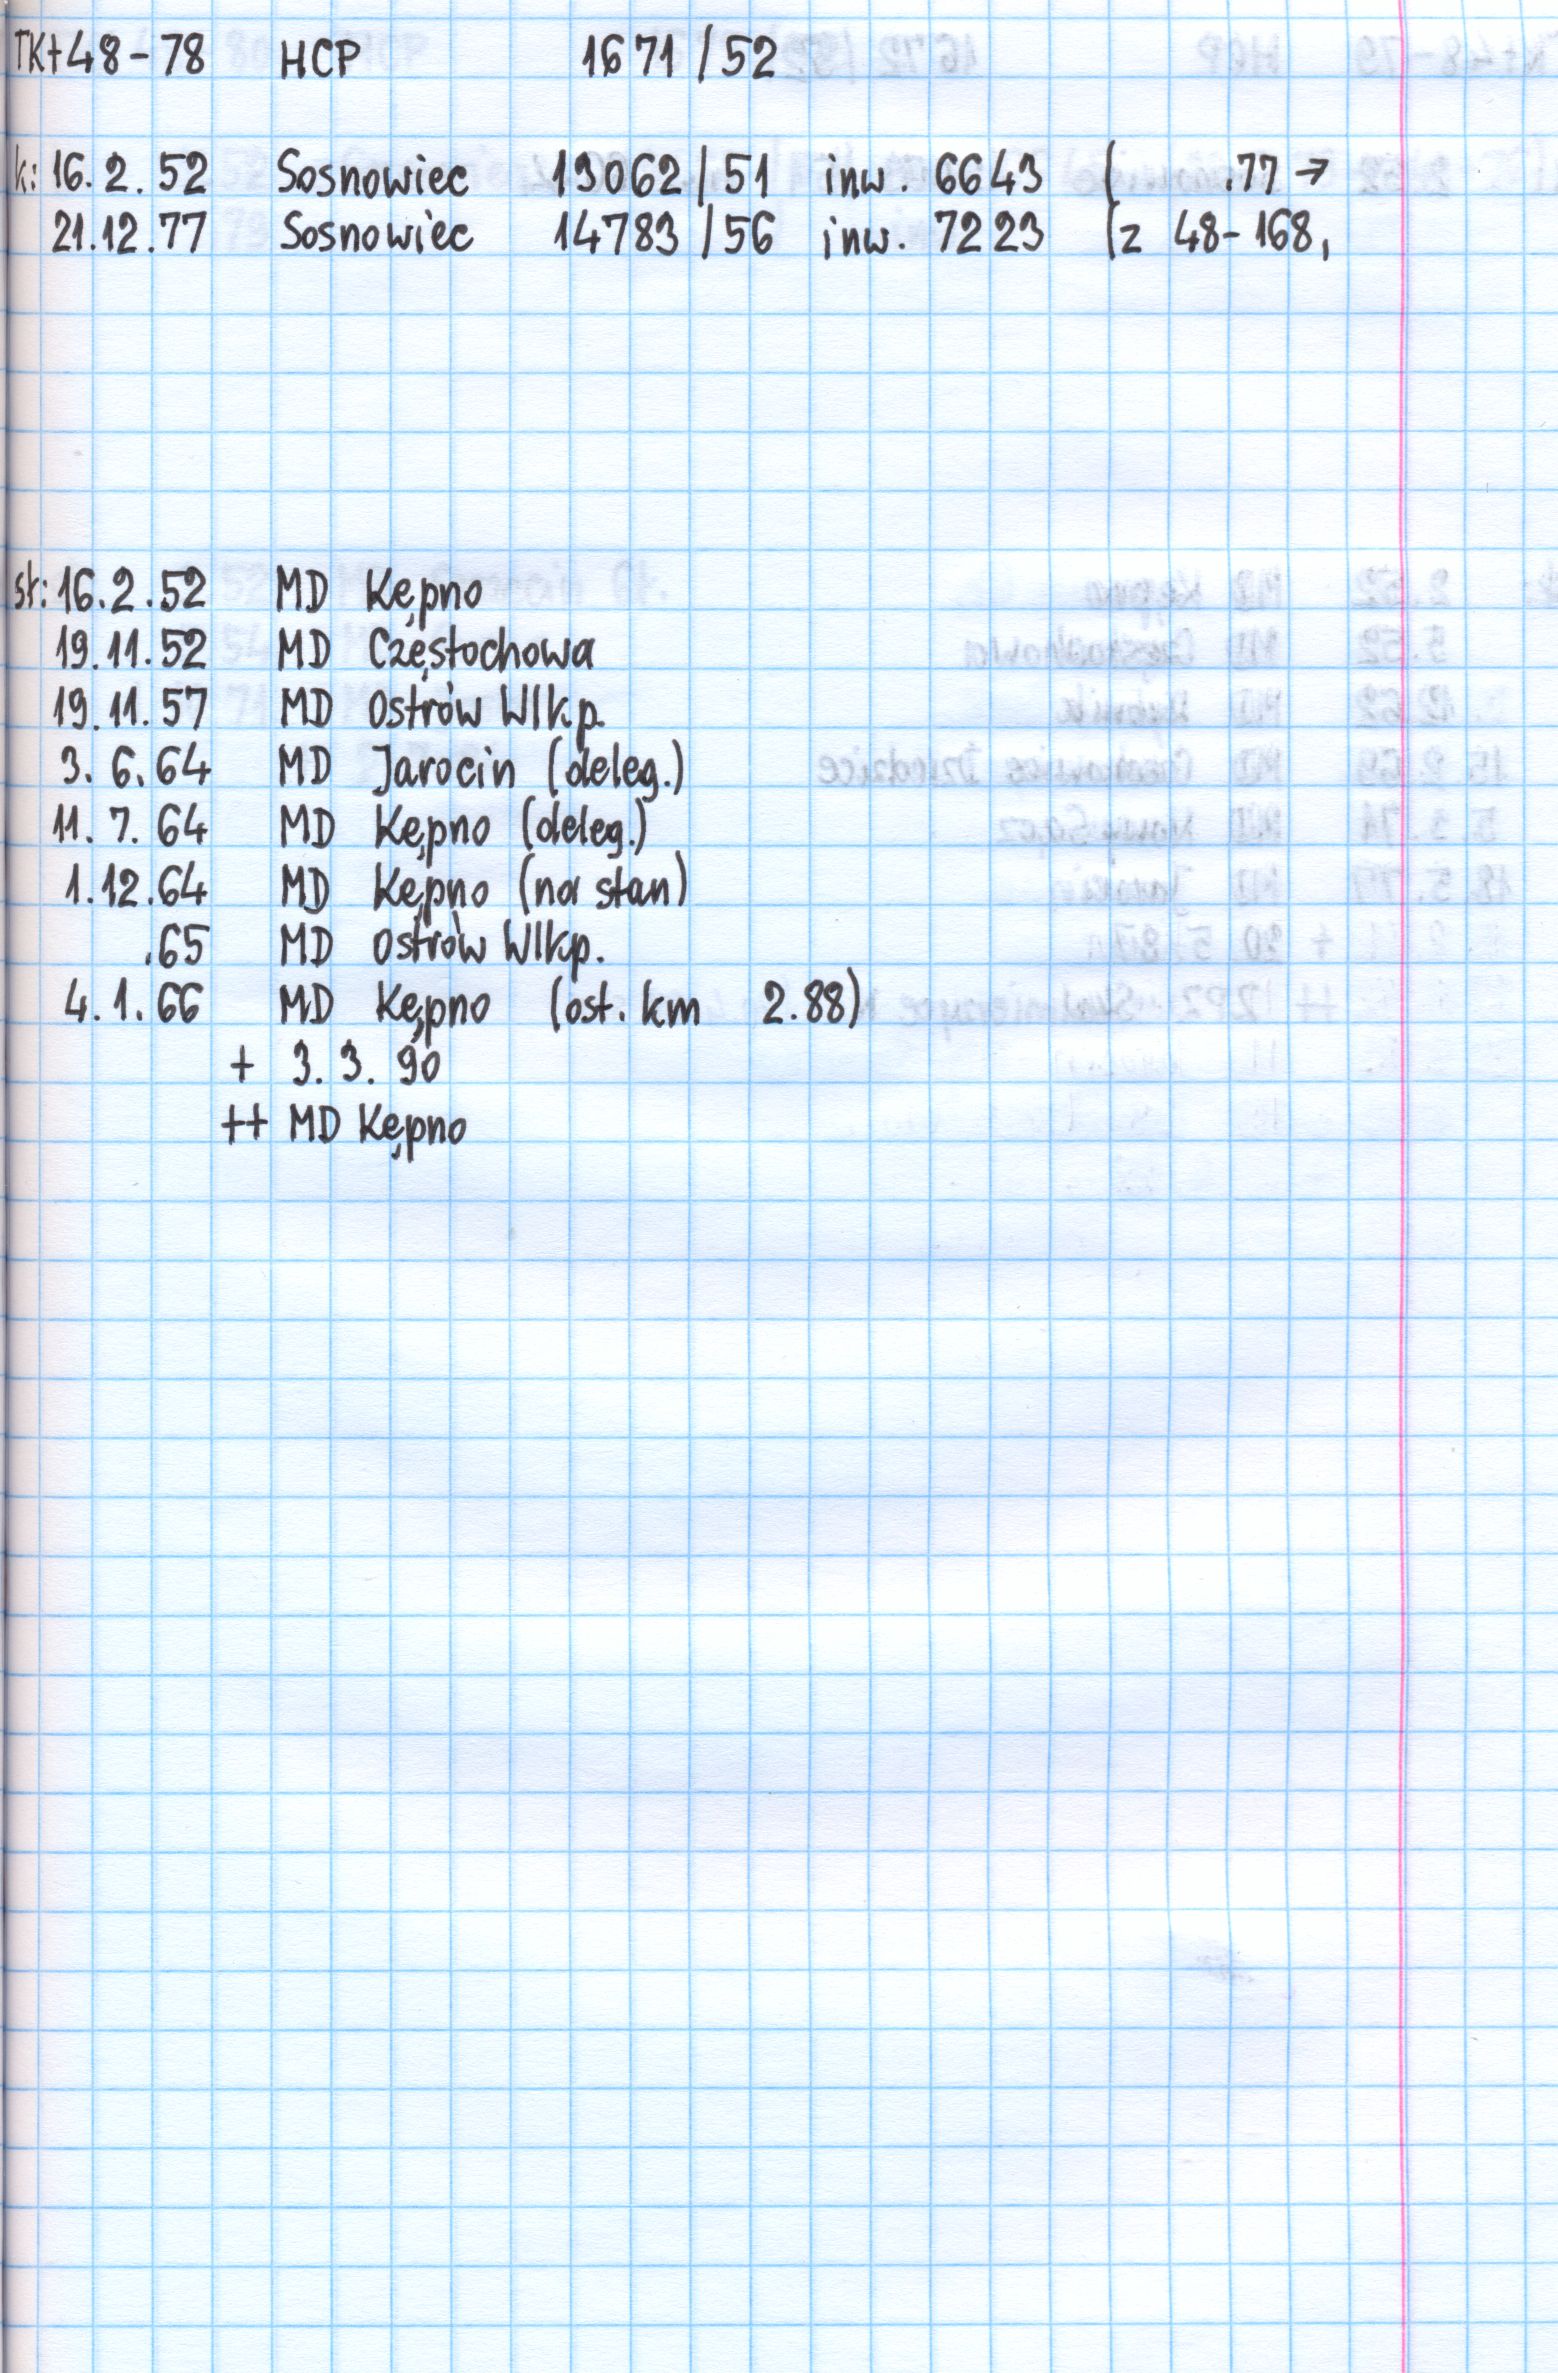 TKt48-78 HCP 1671/52
k: 16.2.52 Sosnowiec 13062/51 inw. 6643 ( .77 →
21.12.77 Sosnowiec 14783/56 inw. 7223 (z 48-168,
st: 16.2.52 MD Kępno
19.11.52 MD Częstochowa
19.11.57 MD Ostrów Wlkp.
3.6.64 MD Jarocin (deleg.)
11.7.64 MD Kępno (deleg.)
1.12.64 MD Kępno (na stan)
.65 MD Ostrów Wlkp.
4.1.66 MD Kępno (ost. km 2.88)
+ 3.3.90
++ MD Kępno